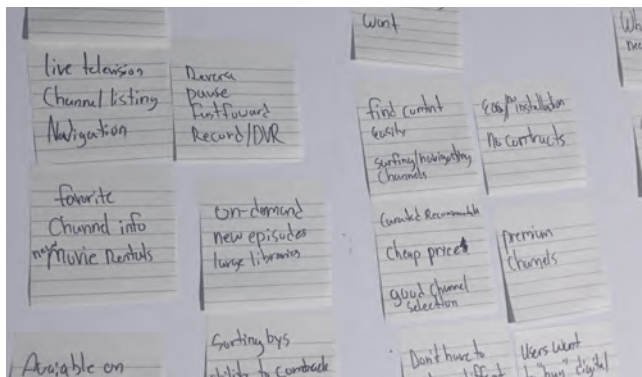 Want
live television
Channel listing
Navigation
Reverse
pause
fastfoward
Record/DVR
find content
easily
surfing/navigating
Channels
Easy/no installation
No contracts
favorite
Channel info
new Movie Rentals
on-demand
new episodes
large libraries
Curated
Cheap prices
good channel
selection
premium
Channels
Avaiable on
Sorting bys
ability to comback
Don't have to
Users want
"buy" digital